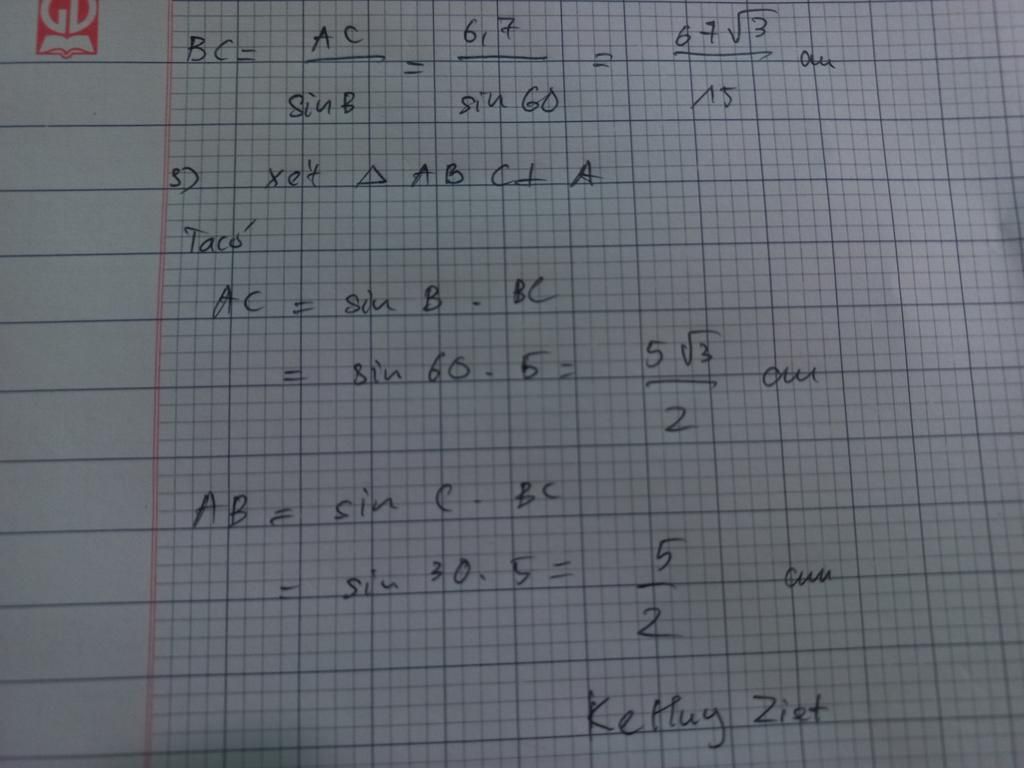 GD
BC = AC / sin B = 6,7 / sin 60 = 67√3 / 15 cm
3) xét Δ ABC ⊥ A
Ta có
AC = sin B . BC
= sin 60 . 5 = 5√3 / 2 cm
AB = sin C . BC
= sin 30 . 5 = 5 / 2 cm